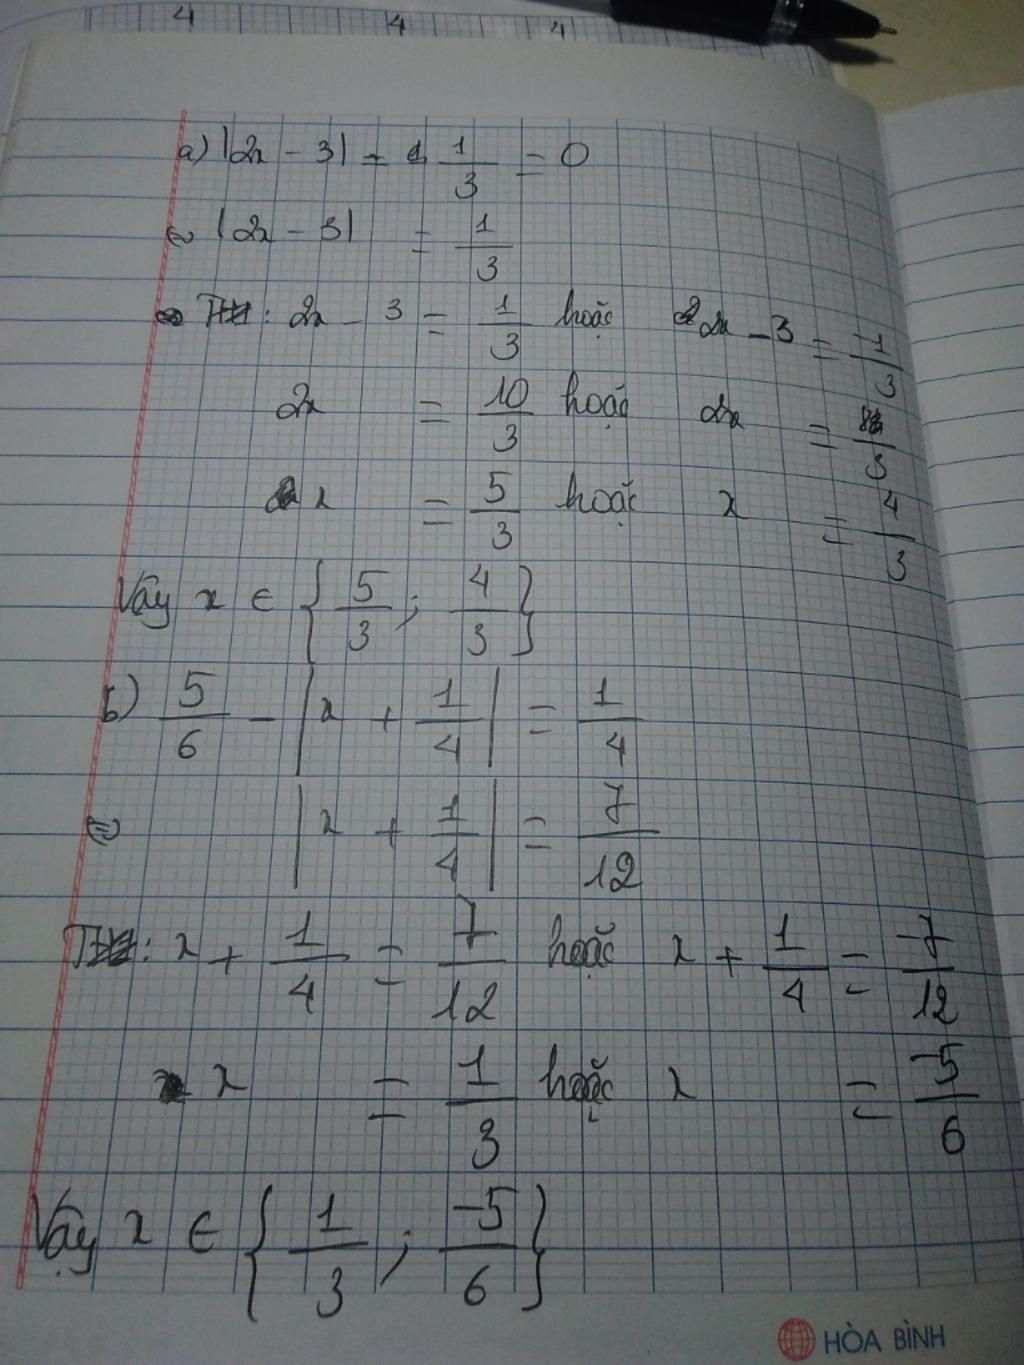 4 4 4
a) |2x - 3| - \frac{1}{3} = 0
⇔ |2x - 3| = \frac{1}{3}
2x - 3 = \frac{1}{3} hoặc 2x - 3 = \frac{-1}{3}
2x = \frac{10}{3} hoặc 2x = \frac{8}{3}
x = \frac{5}{3} hoặc x = \frac{4}{3}
Vậy x ∈ {\frac{5}{3}; \frac{4}{3}}
b) \frac{5}{6} - |x + \frac{1}{4}| = \frac{1}{4}
⇔ |x + \frac{1}{4}| = \frac{7}{12}
x + \frac{1}{4} = \frac{7}{12} hoặc x + \frac{1}{4} = \frac{-7}{12}
x = \frac{1}{3} hoặc x = \frac{-5}{6}
Vậy x ∈ {\frac{1}{3}; \frac{-5}{6}}
HÒA BÌNH